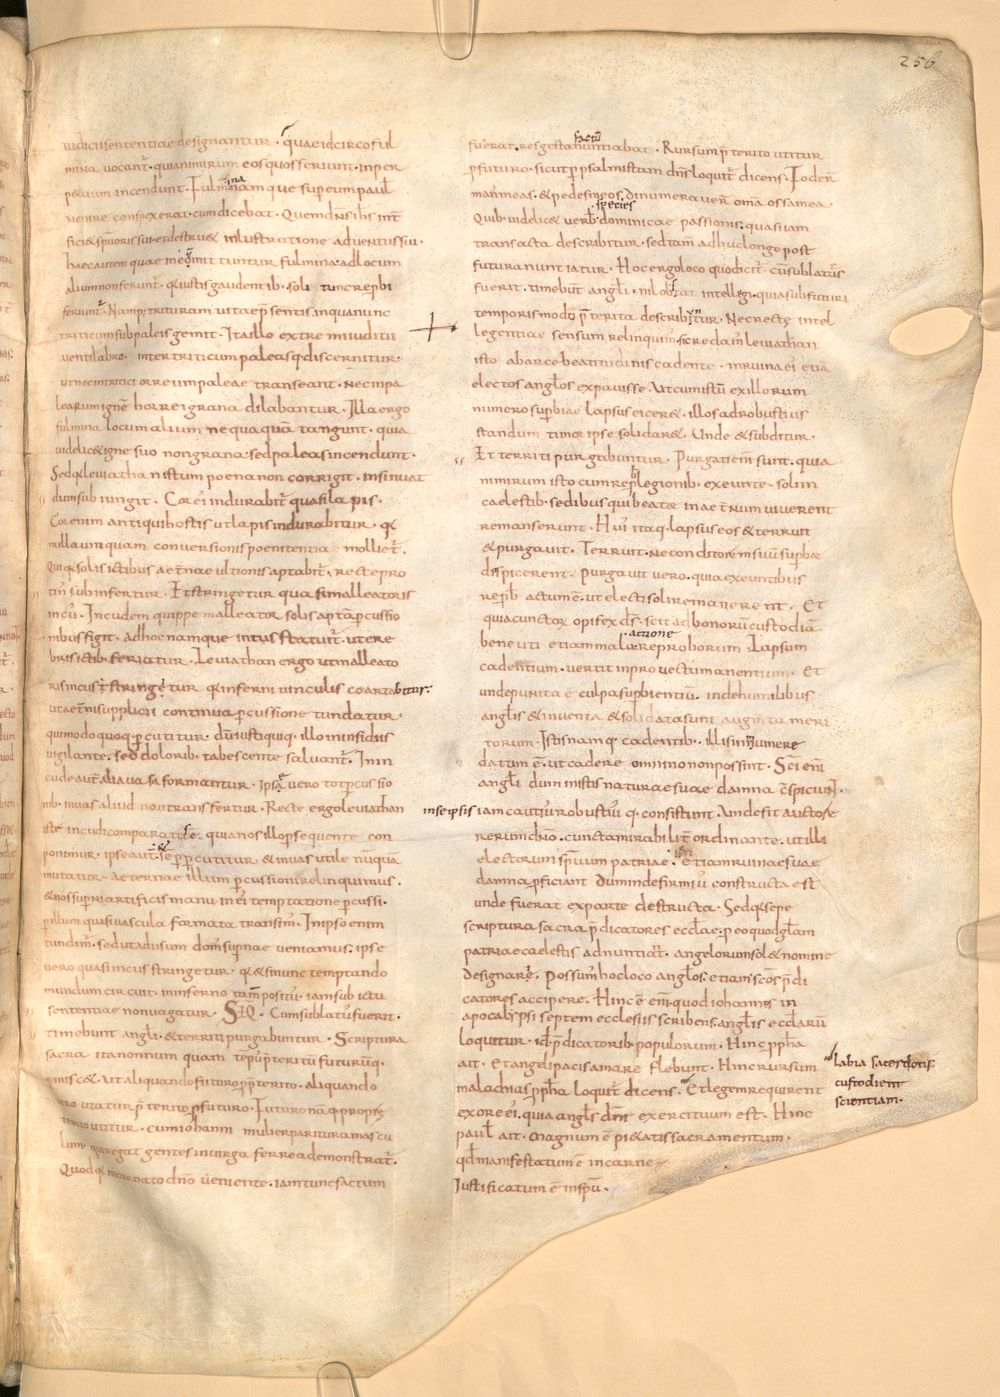 256
iudicii sententiae designantur. quae idcirco ful
mina vocant̄. quia nimirum eos quos feriunt. in per
p&uum incendunt. Fulminam que super eum paul'
venire conspexerat. cum dicebat. Quem dn̄s ihs int̄
fici& sp̄u oris sui. et destru& inlustratione adventus sui.
haec autem quae in eū mittuntur fulmina. ad locum
alium non ferunt̄. q iustis gaudentib. soli tunc rep̄bi
feriunt̄. Nam p' trituram vitae p̄sentis in qua nunc
triticum sub paleis gemit. Ita illo extremi iudicii
ventilabro. inter triticum paleasq. discernitur.
ut nec in tritici orreum paleae transeant. Nec in pa
learum igne horrei grana dilabantur. Illa ergo
fulmina locum alium nequaquā tangunt. quia
videlic& igne suo non grana. sed paleas incendunt.
Sed q leviathan istum poena non corrigit. insinuat
dum subiungit. Cor ei' indurabit̄ quasi lapis.
Cor enim antiqui hostis ut lapis indurabitur. q
nulla umquam conversionis poenitentia mollit̄.
Qui q solis ictibus aet̄nae ultionis aptabit̄. recte pro
tin' subinfertur. Et stringetur quasi malleatoris
incu'. Incudem quippe malleator solis apta p̄cussio
nibus figit. ad hoc namque intus statuit̄. ut cre
bris ictib. feriatur. Leviathan ergo ut malleato
ris incus stringetur. q inferni vinculis coartabitur.
ut aet̄ni supplicii continua p̄cussione tundatur.
qui modo quoq. p̄cutitur. dū iusti quiq. illo in insidiis
vigilante. sed dolorib. tabescente salvant̄. In in
cude aut̄ alia vasa formantur. ipsa vero tot p̄cussio
nib. in vas aliud non transfertur. Recte ergo leviathan
iste incudi comparatus ē. quia nos illo p̄sequente con
ponimur. ipse aut̄ & semp̄ p̄cutitur. & in vas utile nūquā
mutatur. Aeternae illum p̄cussioni relinquimus.
& nos sup̄ni artificis manu in ei' temptatione p̄cussi.
p̄ illum quasi vascula formata transim'. In ipso enim
tundim'. sed ut ad usum dom' sup̄nae veniamus. ipse
vero quasi incus stringetur. q &si nunc temptando
mundum circuit. in inferno tam̄ positus. iam sub ictu
sententiae non vagatur. SEQ. Cum sublatus fuerit.
timebunt angli. & territi purgabuntur. Scriptura
sacra ita nonnumquam temp' p̄teritū futurūq.
misc&. ut aliquando futuro p̄ p̄terito. aliquando
vero utatur p̄terito p̄ futuro. Futuro nāq. p̄ p̄p̄
terito utitur. cum iohanni mulier paritura mascu
lum. qui regat gentes in virga ferrea demonstrat̄.
Quod q incarnato dn̄o veniente. iam tunc factum
fuerat. res gesta factū nuntiabat. Rursum p̄terito utitur
p̄ futuro. sicut p̄ psalmistam dn̄s loquit̄ dicens. Foder̄
man' meas. & pedes meos. dinumeraver̄ om̄a ossa mea.
Quib. videlic& verb. species dominicae passionis. quasi iam
transacta describitur. sed tam̄ adhuc longe post
futura nuntiatur. Hoc ergo loco quo dicit̄. cū sublatus
fuerit. timebunt angli. nil obstat intellegi. quia sub futuri
temporis modo p̄terita describuntur. Nec recte intel
legentiae sensum relinquim'. si credam' leviathan
isto ab arce beatitudinis cadente. in ruina ei' etiā
electos anglos expavisse. Ut cum istū ex illorum
numero superbiae lapsus eicer&. illos ad robustius
standum timor ipse solidar&. Unde & subditur.
Et territi purgabuntur. Purgati em̄ sunt. quia
nimirum isto cum rep̄b. legionib. exeunte. soli in
caelestib. sedibus qui beate in aet̄num viverent
remanserunt. Hui' itaq. lapsus eos & terruit
& purgavit. Terruit. ne conditorem suū sup̄be
despicerent. Purgavit vero. quia exeuntibus
rep̄b. actum ē. ut electi soli remanerent. Et
quia cunctor' opifex ds̄. scit ad bonorū custodiā
bene uti etiam mala actione reproborum. Lapsum
cadentium. vertit in provectum manentium. Et
unde punita ē culpa sup̄bientiū. inde humilibus
anglis & inventa & solidata sunt augmenta meri
torum. Istis namq. cadentib. illis in munere
datum ē. ut cadere omnino non possint. Sci em̄
angli dum in istis naturae suae damna cspiciunt.
in se ipsis iam cautiū robustiū q. consistunt. Unde fit auctore
rerum dn̄o. cuncta mirabilit̄ ordinante. ut illi
electorum sp̄uum patriae. etiam ruinae suae
damna p̄ficiant dum inde firmiū constructa est
unde fuerat ex parte destructa. Sed q sepe
scriptura sacra p̄dicatores eccl̄ae. p̄ eo quod gl̄am
patriae caelestis adnuntiant̄. angelorum sol& nomine
designare. Possum' hoc loco anglos. etiam scos p̄di
catores accipere. Hinc ē em̄. quod iohannes in
apocalypsi septem ecclesiis scribens. anglis eccl̄arū
loquitur. id ē p̄dicatorib. populorum. Hinc p̄ph̄a
ait. Et angeli pacis amare flebunt. Hinc rursum
malachias p̄ph̄a loquit̄ dicens. labia sacerdotis
custodient
scientiam. Et legem requirent
ex ore ei'. quia angls dn̄i exercituum est. Hinc
paul' ait. Magnum ē pi&atis sacramentum.
qd manifestatum ē in carne
Iustificatum ē in sp̄u.